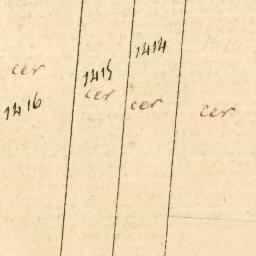 cer
1416
1415
cer
1414
cer
cer